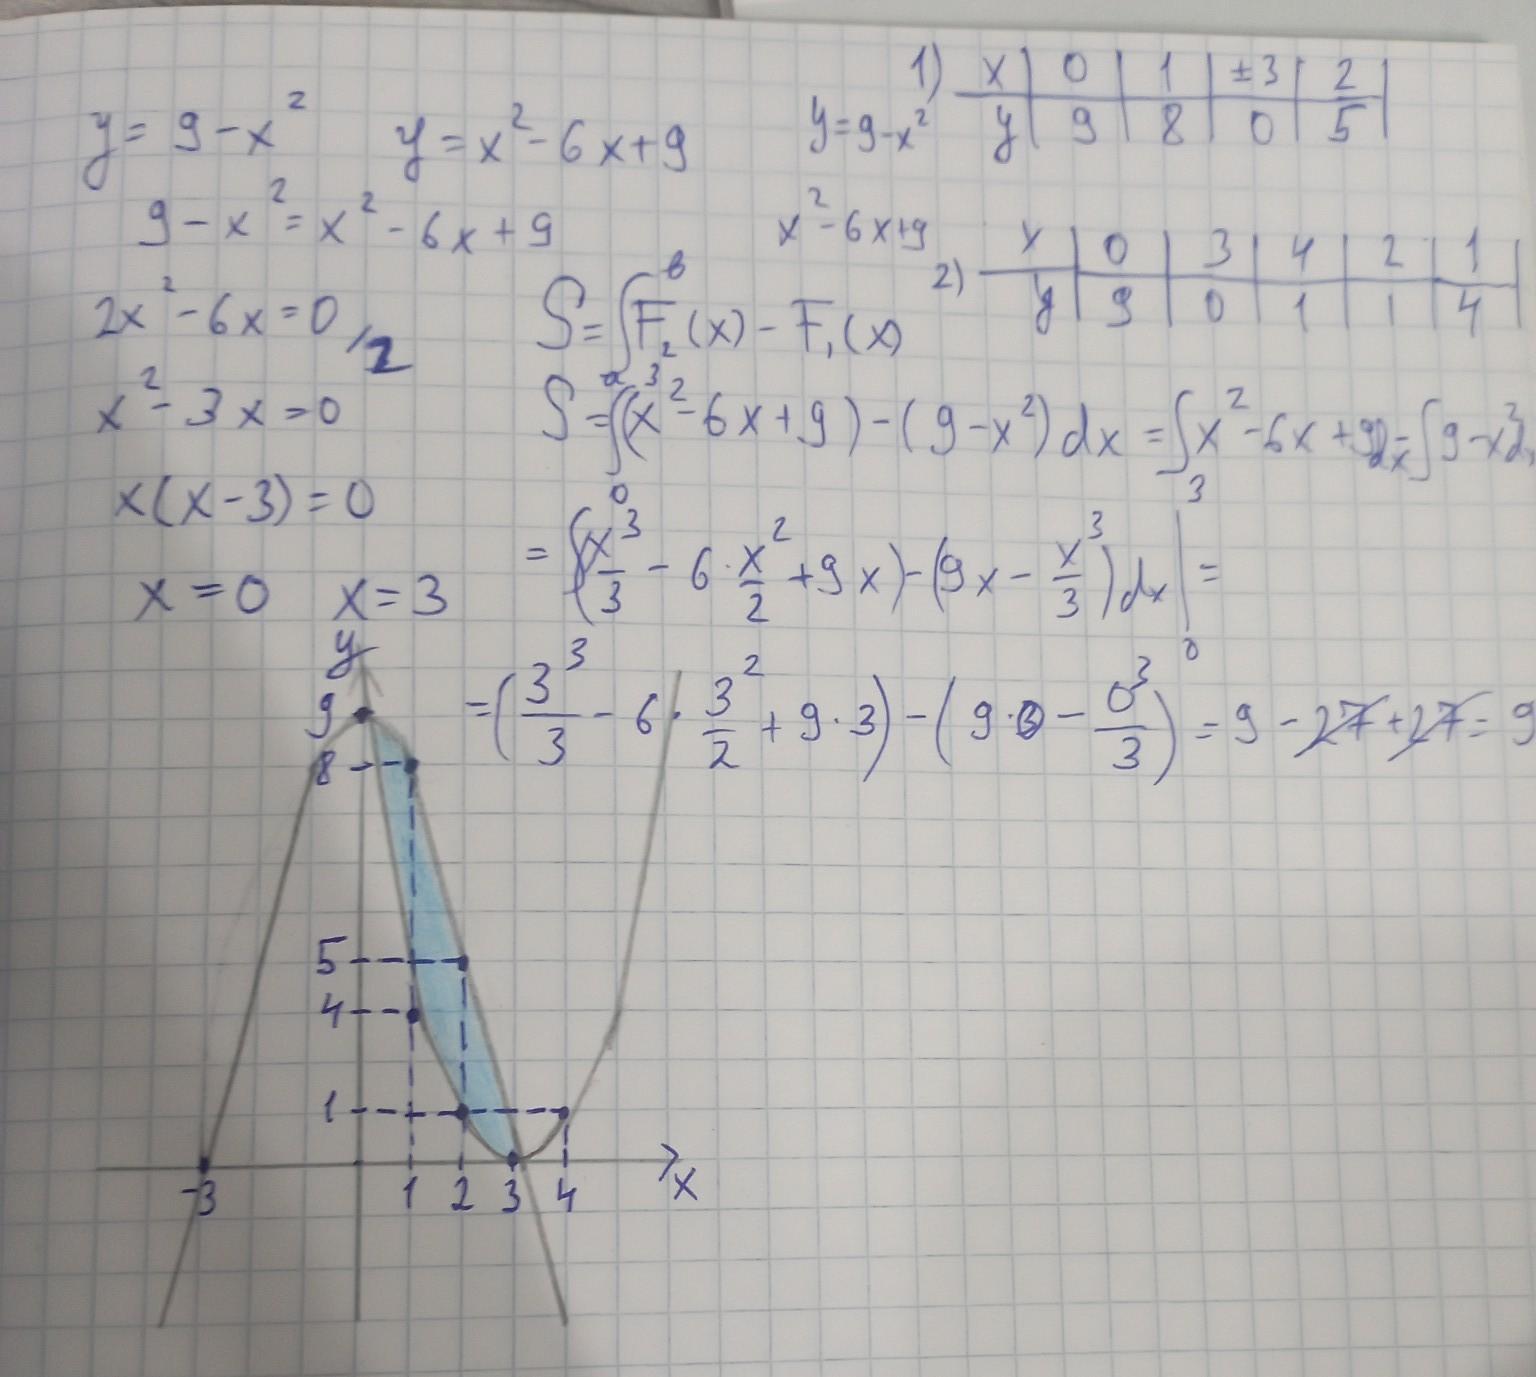 y = 9 - x²   y = x² - 6x + 9
9 - x² = x² - 6x + 9
2x² - 6x = 0 /2
x² - 3x = 0
x(x - 3) = 0
x = 0   x = 3
1) x | 0 | 1 | ±3 | 2 |
y = 9 - x²   y | 9 | 8 | 0 | 5 |
x² - 6x + 9
2) x | 0 | 3 | 4 | 2 | 1 |
y | 9 | 0 | 1 | 1 | 4 |
S = ∫ₐᵇ F₂(x) - F₁(x)
S = ∫₀³ (x² - 6x + 9) - (9 - x²) dx = ∫ x² - 6x + 9 dx - ∫ 9 - x² d
= ((x³/3 - 6 · x²/2 + 9x) - (9x - x³/3) dx |₀³ =
= (3³/3 - 6 · 3²/2 + 9 · 3) - (9 · 0 - 0³/3) = 9 - 27 + 27 = 9
y
9
8
5
4
1
-3 1 2 3 4 x